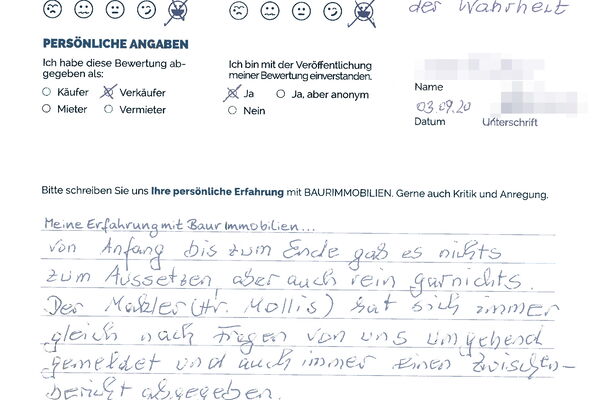 der Wahrheit
PERSÖNLICHE ANGABEN
Ich habe diese Bewertung ab-
gegeben als:
Käufer Verkäufer
Mieter Vermieter
Ich bin mit der Veröffentlichung
meiner Bewertung einverstanden.
Ja Ja, aber anonym
Nein
Name
03.09.20
Datum Unterschrift
Bitte schreiben Sie uns Ihre persönliche Erfahrung mit BAURIMMOBILIEN. Gerne auch Kritik und Anregung.
Meine Erfahrung mit Baur Immobilien...
von Anfang bis zum Ende gab es nichts
zum Aussetzen, aber auch rein garnichts.
Der Makler (Hr. Mollis) hat sich immer
gleich nach Fragen von uns umgehend
gemeldet und auch immer einen Zwischen-
bericht abgegeben.